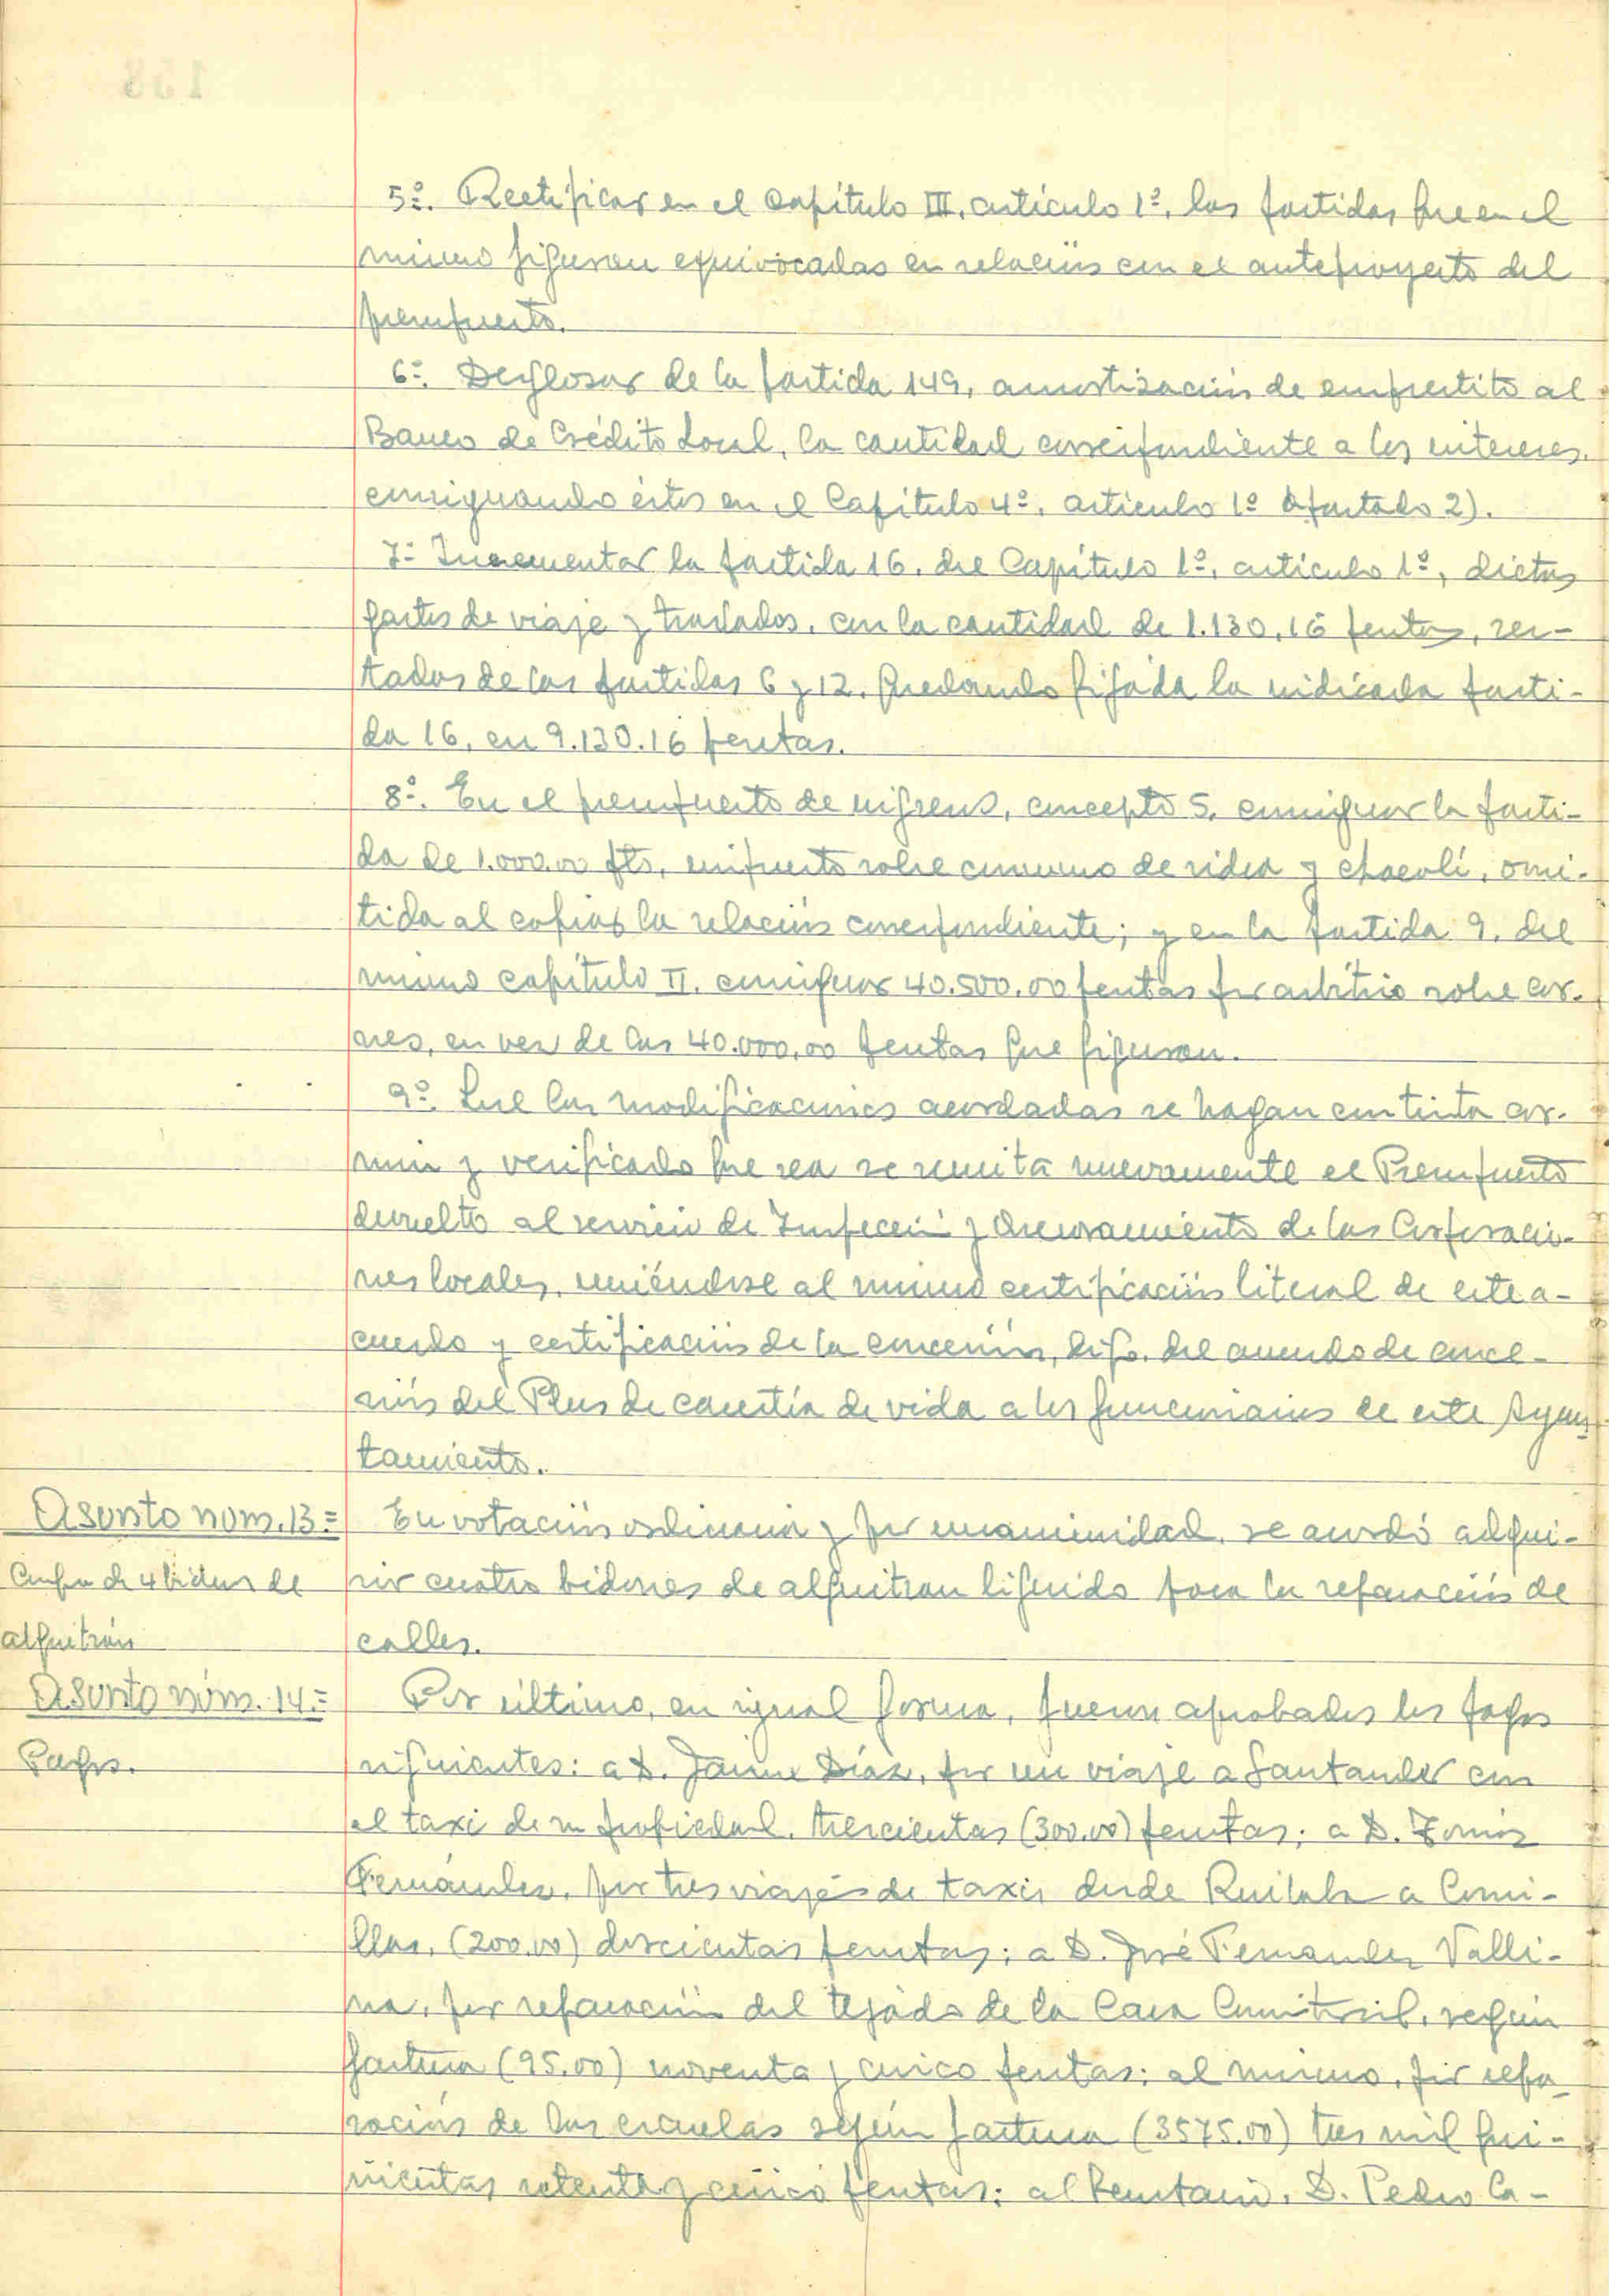 5º. Rectificar en el Capítulo III, artículo 1º, las partidas que en el
mismo figuran equivocadas en relación con el anteproyecto del
presupuesto.
6º. Desglosar de la partida 149, amortización de empréstito al
Banco de Crédito Local, la cantidad correspondiente a los intereses,
consignando éstos en el Capítulo 4º, artículo 1º apartado 2).
7º Incrementar la partida 16, del Capítulo 1º, artículo 1º, dietas
gastos de viaje y traslados, con la cantidad de 1.130,16 pesetas, res-
tadas de las partidas 6 y 12, quedando fijada la indicada parti-
da 16, en 9.130.16 pesetas.
8º. En el presupuesto de ingresos, concepto 5, consignar la parti-
da de 1.000.00 pts, impuesto sobre consumo de sidra y chacolí, omi-
tida al copiar la relación correspondiente; y en la partida 9, del
mismo capítulo II, consignar 40.500,00 pesetas por arbitrio sobre car-
nes, en vez de las 40.000,00 pesetas que figuran.
9º. Que las modificaciones acordadas se hagan con tinta car-
mín y verificado que sea se remita nuevamente el Presupuesto
devuelto al servicio de Inspección y Asesoramiento de las Corporacio-
nes locales, uniéndose al mismo certificación literal de este a-
cuerdo y certificación de la concesión, digo, del acuerdo de conce-
sión del Plus de carestía de vida a los funcionarios de este Ayun-
tamiento.
Asunto núm. 13=
Compra de 4 bidones de
alquitrán
En votación ordinaria y por unanimidad, se acordó adqui-
rir cuatro bidones de alquitran liquido para la reparación de
calles.
Asunto núm. 14=
Pagos.
Por último, en igual forma, fueron aprobados los pagos
siguientes: a D. Jaime Díaz, por un viaje a Santander con
el taxi de su propiedad, trescientas (300,00) pesetas; a D. Tomás
Fernández, por tres viajes de taxis desde Ruiloba a Comi-
llas, (200,00) doscientas pesetas; a D. José Fernandez Valli-
na, por reparación del tejado de la Casa Consitorial, según
factura (95.00) noventa y cinco pesetas; al mismo, por repa-
ración de las escuelas según factura (3575.00) tres mil qui-
nientas setenta y cinco pesetas; al D. Pedro Ca-